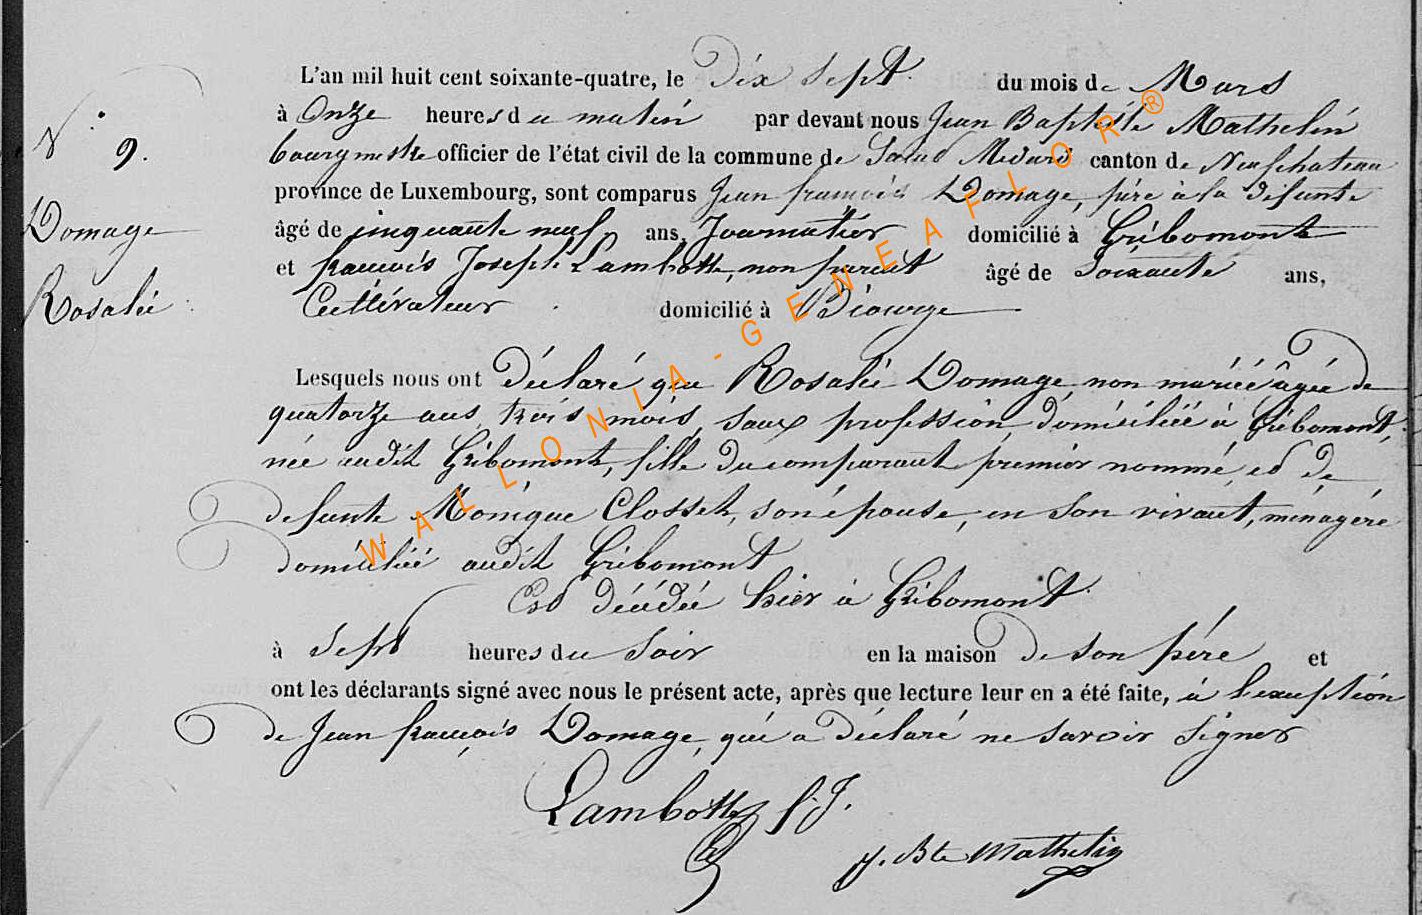 N° 9.
Domage
Rosalie
L'an mil huit cent soixante-quatre, le Dix Sept du mois de Mars
à Onze heures du matin par devant nous Jean Baptiste Mathelin
bourgmestre officier de l'état civil de la commune de Saint Médard canton de Neufchateau
province de Luxembourg, sont comparus Jean françois Domage, père à la défunte
âgé de cinquante neuf ans, Journalier domicilié à Gribomont
et françois Joseph Lambotte, non parent âgé de Soixante ans,
Cultivateur domicilié à Biourge
Lesquels nous ont Déclaré que Rosalie Domage non mariée âgée de
quatorze ans trois mois, sans profession, domiciliée à Gribomont,
née audit Gribomont, fille du comparant premier nommé et de
défunte Monique Closset, son épouse, en son vivant, ménagère
domiciliée audit Gribomont
Est décédée hier à Gribomont
à Sept heures du Soir en la maison de son père et
ont les déclarants signé avec nous le présent acte, après que lecture leur en a été faite, à l'exception
de Jean françois Domage, qui a Déclaré ne savoir Signer
Lambotte f. J.
J. Bte Mathelin
WALLONIA-GENEAFLOR®